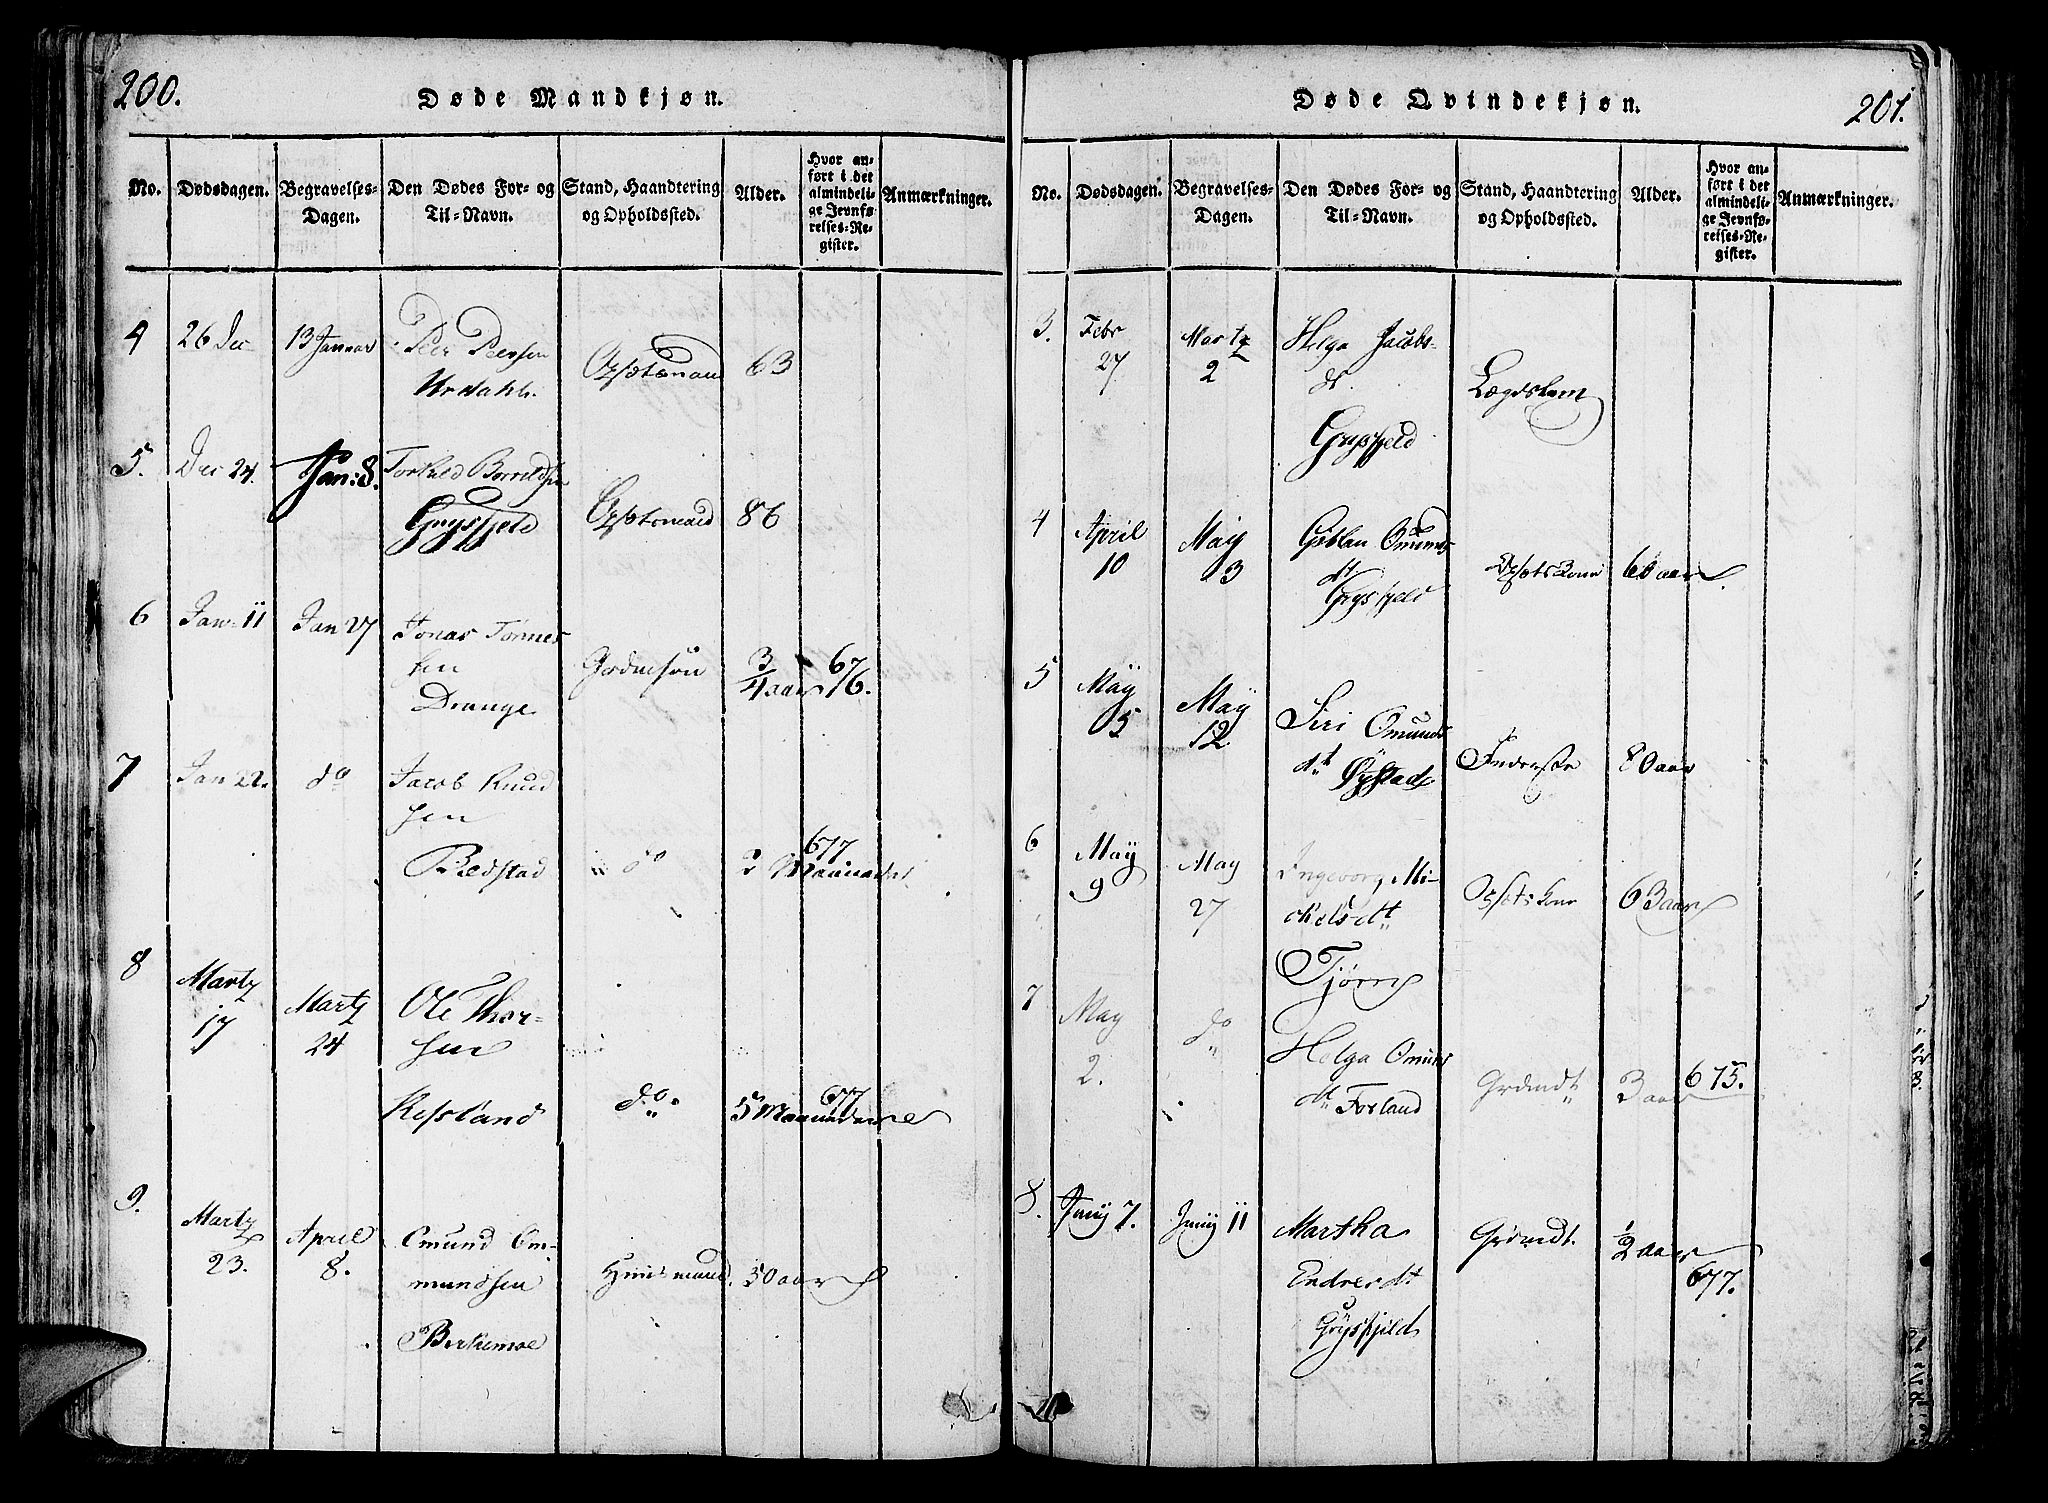 200.
Døde Mandkjøn.
No.
Dødsdagen.
Begravelses-
Dagen.
Den Dødes For- og
Til-Navn.
Stand, Haandtering
og Opholdssted.
Alder.
Hvor an-
ført i det
almindeli-
ge Jevnfø-
relses-Re-
gister.
Anmærkninger.
4 26 Dec 13 Januar Peer Peersen
Urdahl. 63
5. Dec 24. Jan: 8. Torkild
Grysfjeld 86
6 Jan 11 Jan 27 Jonas Tønnes
sen
Drange
3/4 aar 676.
7 Jan 22. do Jacob Knud
sen
Refstad do 2 Maaneder 677
8 Martz
17
Martz
24
Ole Thor-
sen
Refsland do 5 Maaneder 677
9. Martz
23.
April
8.
Omund Om-
mundsen
Birkemoe
Huusmand. 50 aar
201.
Døde Qvindekjøn.
No.
Dødsdagen.
Begravelses-
Dagen.
Den Dødes For- og
Til-Navn.
Stand, Haandtering
og Opholdssted.
Alder.
Hvor an-
ført i det
almindeli-
ge Jevnfø-
relses-Re-
gister.
Anmærkninger.
3. Febr
27
Martz
2
Helga Jacobs-
dt.
Grysfjeld
Lægdslem
4 April
10
May
3
Omunds
dt
Grysfjeld
60 aar.
5 May
5
May
12
Siri Omunds
dt Øystad
Inderste 80 aar
6 May
9
May
27
Ingeborg Mi-
kelsdt
Tjørn
63 aar
7 May
2.
do
Helga Omunds
dt Forland
Grdmdt 3 aar 675.
8. Juny 7. Juny 11 Martha
Endresdt
Grysfjeld
Grdmdt. 1/2 aar
677.